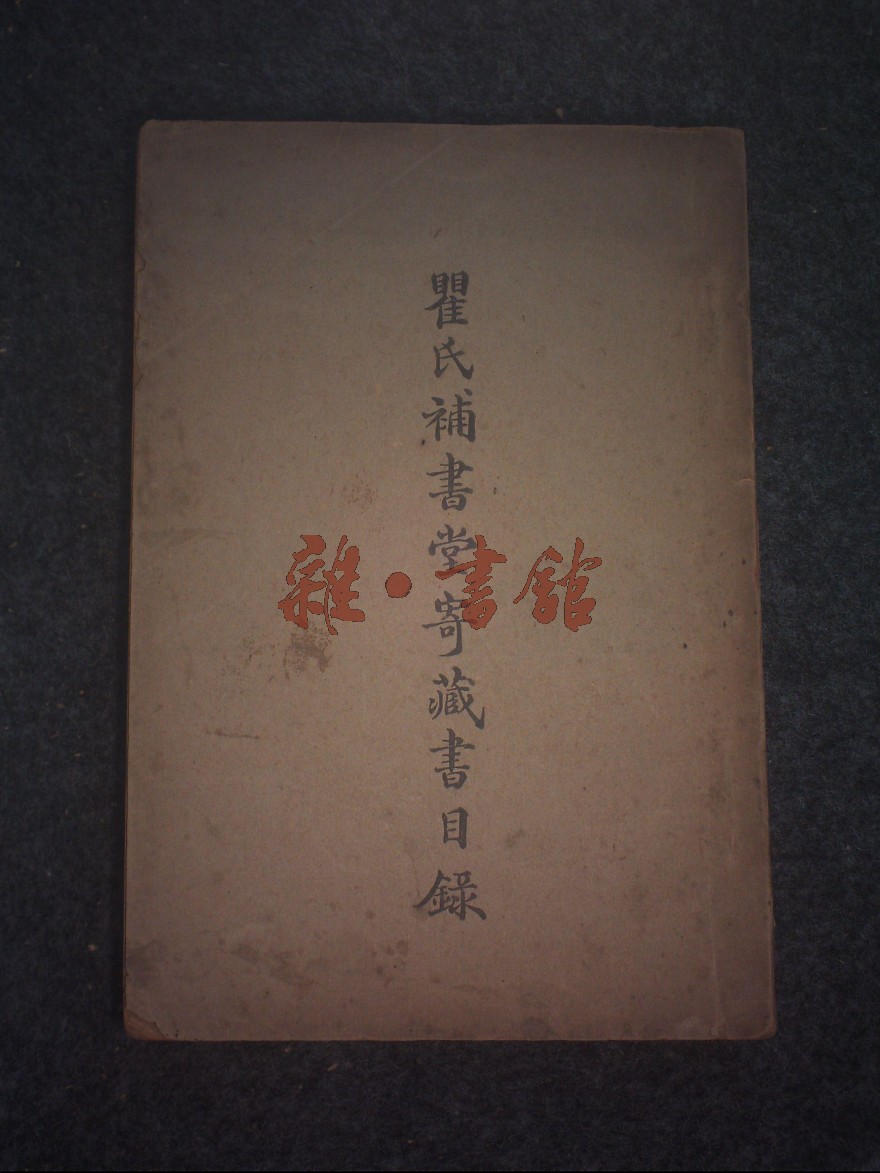 瞿氏補書堂寄藏書目錄
雜·書館